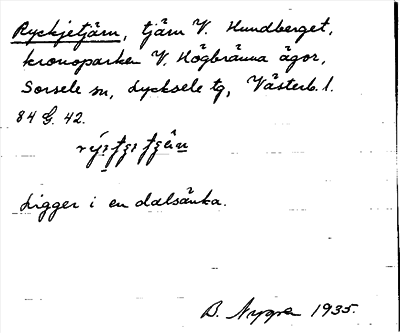 Ryckjetjärn, tjärn V. Hundberget,
kronoparken V. Högbränna ägor,
Sorsele sn, Lycksele tg, Västerb. l.
84 G. 42.
Ligger i en dalsänka.
B. Nygren 1935.